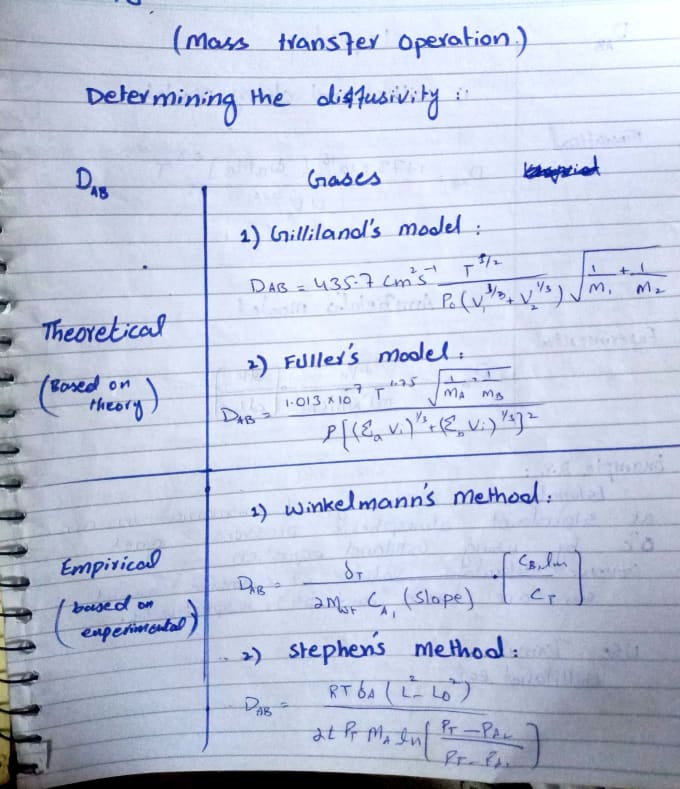 (mass transfer operation.)
Determining the diffusivity :
D_AB
Gases
1) Gilliland's model :
D_AB = 435.7 cm²s⁻¹ T^3/2 / P₀(V₁^1/3 + V₂^1/3) √(1/M₁ + 1/M₂)
Theoretical
(Based on
theory)
2) Fuller's model :
D_AB = 1.013 × 10⁻⁷ T^1.75 √(1/M_A + 1/M_B) / P[(Σ_a Vi)^1/3 + (Σ_b Vi)^1/3]²
1) Winkelmann's method :
Empirical
(based on
experimental)
D_AB = δ_T / 2M C_A₁ (slope) · [C_B,lm / C_T]
2) Stephen's method :
D_AB = RT δ_A (L² - L₀²) / 2t P_T M_A ln[P_T - P_AL / P_T - P_A]